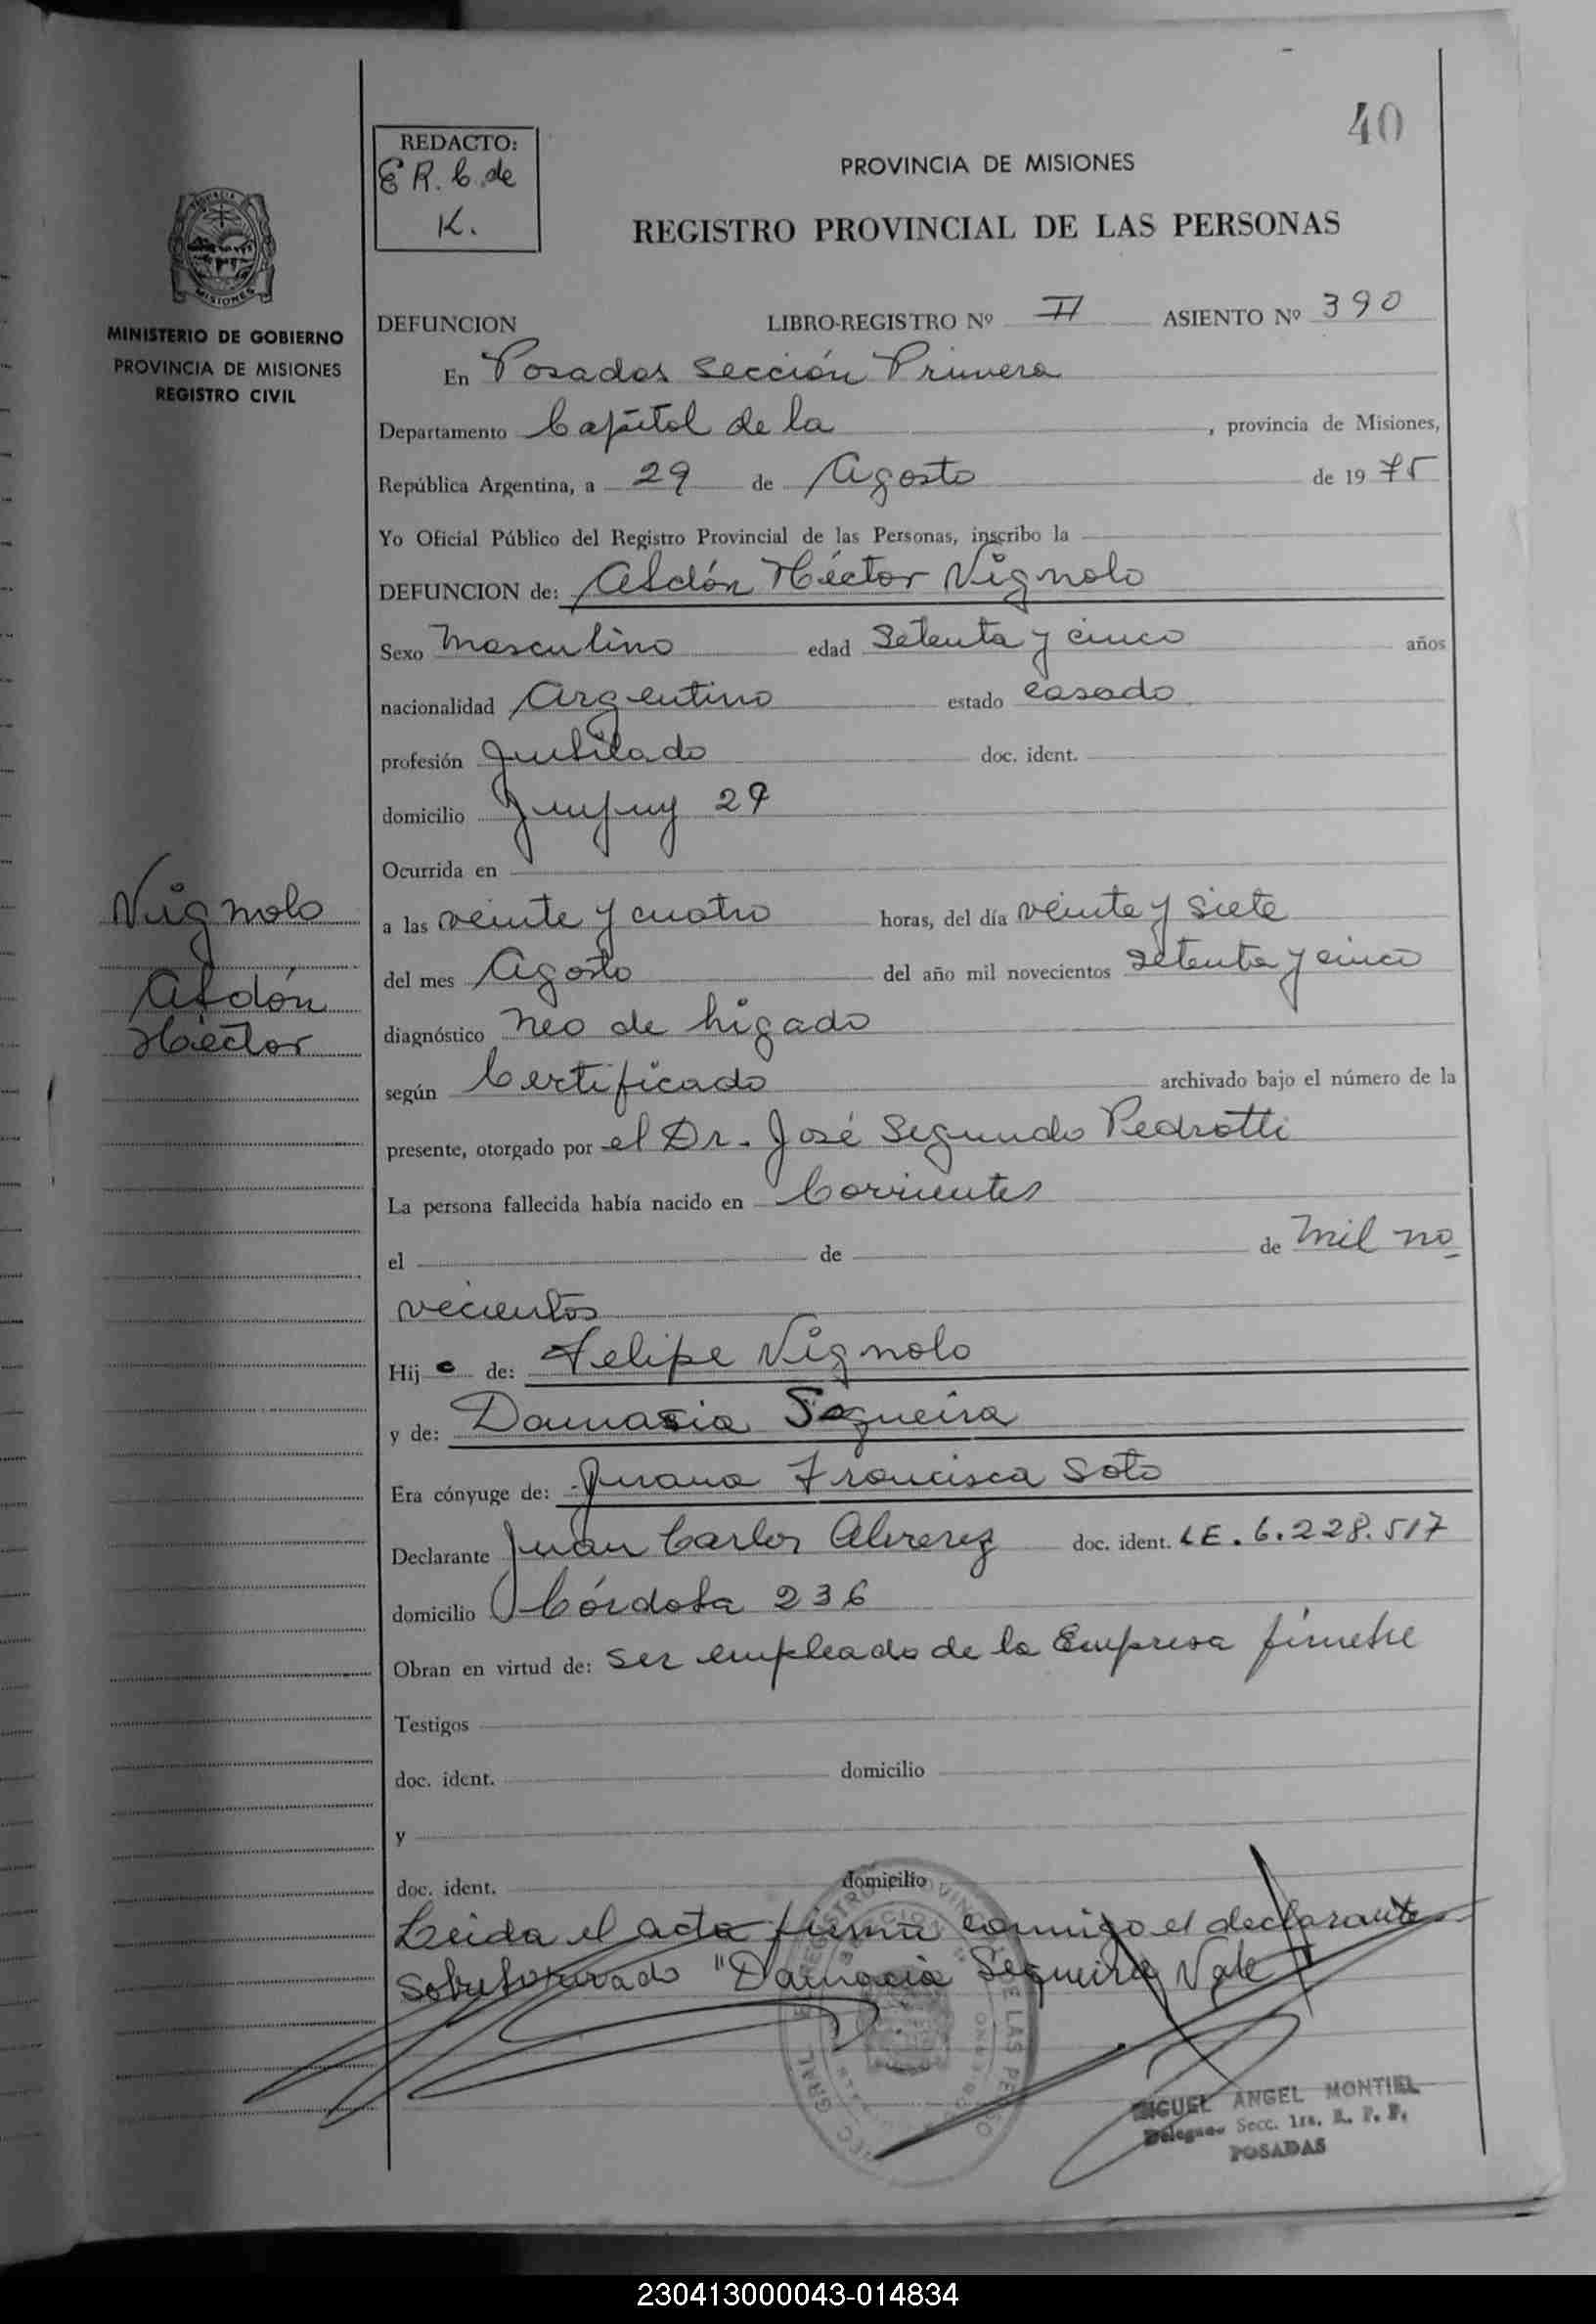 40
REDACTO:
E R. C. de
K.
PROVINCIA DE MISIONES
REGISTRO PROVINCIAL DE LAS PERSONAS
MISIONES
MINISTERIO DE GOBIERNO
PROVINCIA DE MISIONES
REGISTRO CIVIL
DEFUNCION LIBRO-REGISTRO Nº II ASIENTO Nº 390
En Posadas Sección Primera
Departamento Capital de la , provincia de Misiones,
República Argentina, a 29 de Agosto de 19 75
Yo Oficial Público del Registro Provincial de las Personas, inscribo la
DEFUNCION de: Abdón Héctor Vignolo
Sexo Masculino edad Setenta y cinco años
nacionalidad Argentino estado casado
profesión Jubilado doc. ident.
domicilio Jujuy 29
Ocurrida en
Vignolo
Abdón
Héctor
a las veinte y cuatro horas, del día veinte y siete
del mes Agosto del año mil novecientos setenta y cinco
diagnóstico Neo de hígado
según Certificado archivado bajo el número de la
presente, otorgado por el Dr. José Segundo Pedrotti
La persona fallecida había nacido en Corrientes
el de de Mil no
vecientos
Hij o de: Felipe Vignolo
y de: Damasia Sequeira
Era cónyuge de: Juana Francisca Soto
Declarante Juan Carlos Alvarez doc. ident. LE. 6.228.517
domicilio Córdoba 236
Obran en virtud de: Ser empleado de la Empresa fúnebre
Testigos
doc. ident. domicilio
y
doc. ident. domicilio
Leida el acta firma conmigo el declarante
Sobreborrado "Damacia Sequeira Vale
MIGUEL ANGEL MONTIEL
Delegado Secc. 1ra. R. P. P.
POSADAS
230413000043-014834